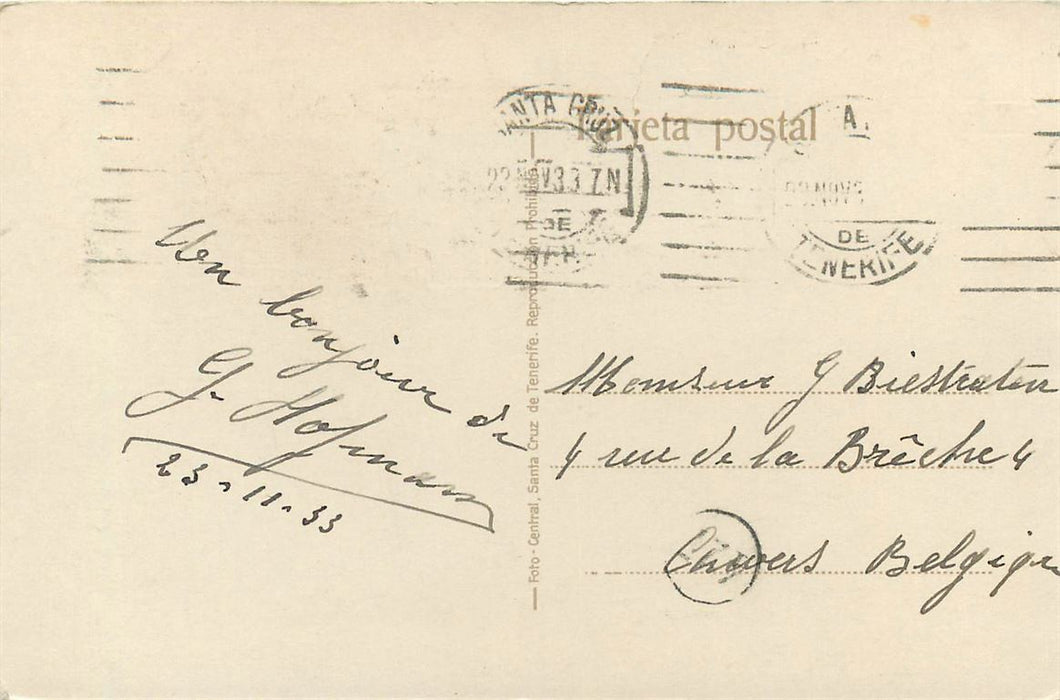 Tarjeta postal
SANTA CRUZ
22 NOV 33 7N
DE
A.
22 NOV 3
DE
TENERIFE
Un bonjour de
G. Hofmann
23-11-33
Foto-Central, Santa Cruz de Tenerife. Reproducción Prohibida
Monsieur G Biestraten
4 rue de la Brêche 4
Anvers Belgique